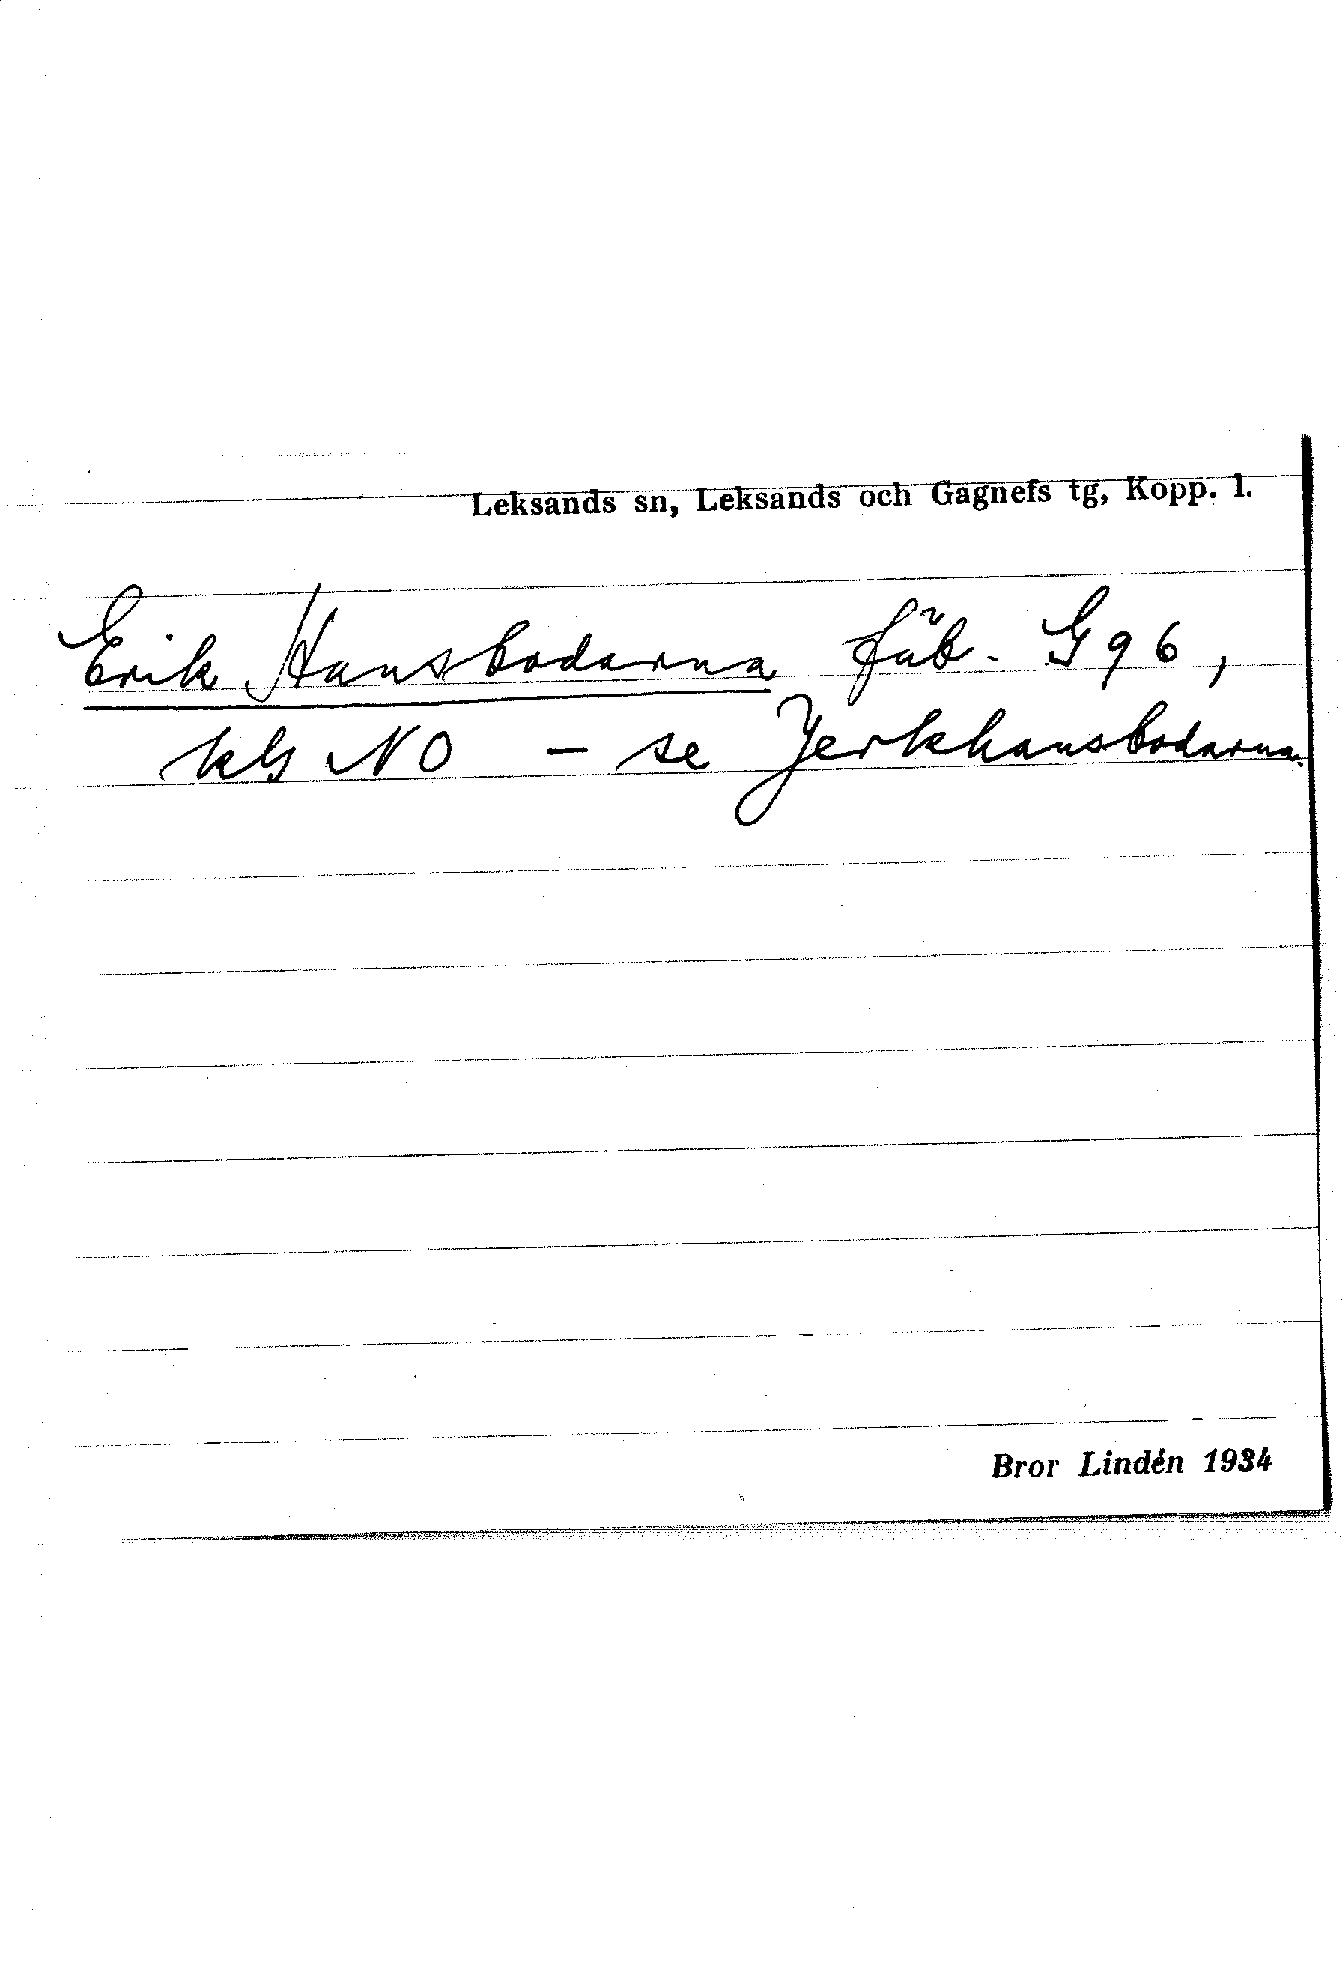 Leksands sn, Leksands och Gagnefs tg, Kopp. l.
Erik Hansbodarna fäb. G 96,
kls NO – se Jerkhansbodarna.
Bror Lindén 1934